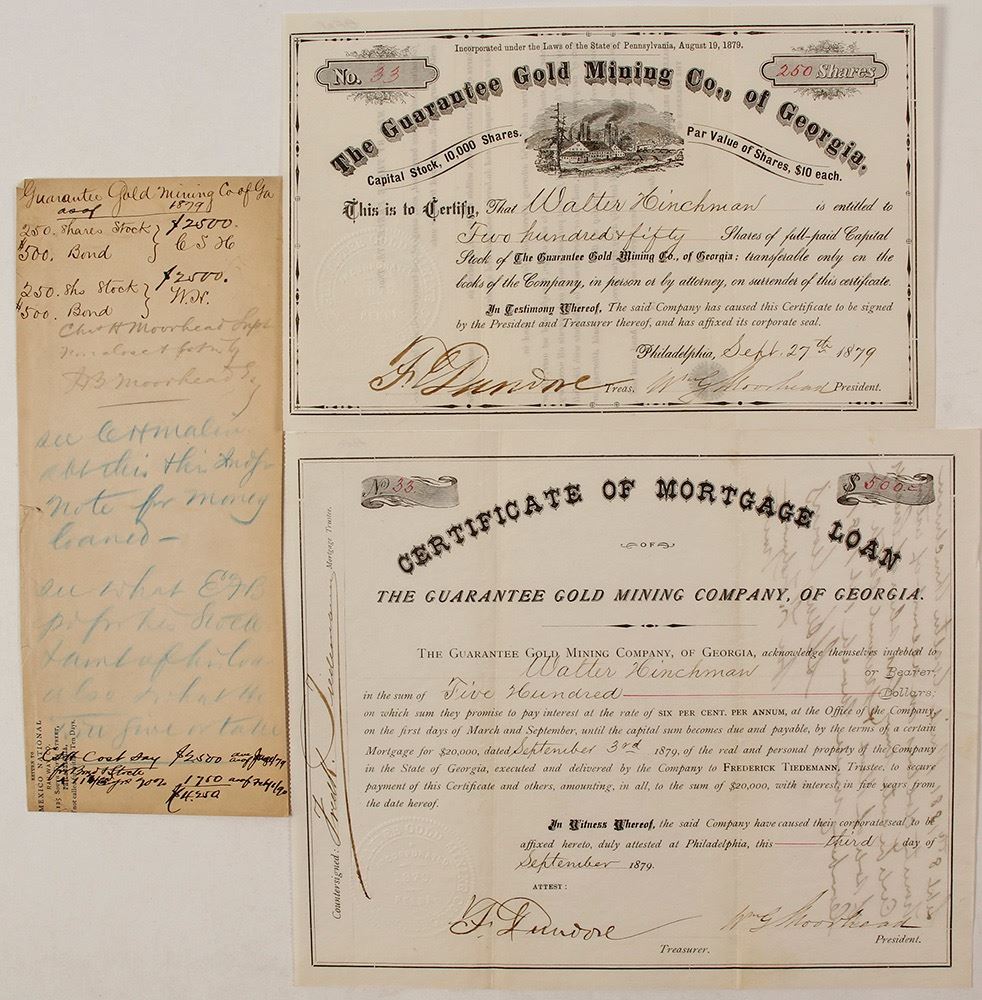 Incorporated under the Laws of the State of Pennsylvania, August 19, 1879.
No. 33
250 Shares
The Guarantee Gold Mining Co., of Georgia.
Capital Stock, 10,000 Shares.
Par Value of Shares, $10 each.
This is to Certify, That Walter Hinchman is entitled to
Two hundred & fifty Shares of full-paid Capital
Stock of The Guarantee Gold Mining Co., of Georgia; transferable only on the
books of the Company, in person or by attorney, on surrender of this certificate.
In Testimony Whereof, The said Company has caused this Certificate to be signed
by the President and Treasurer thereof, and has affixed its corporate seal.
Philadelphia, Sept. 27th 1879
F. Dundore Treas. Wm G Moorhead President.
Guarantee Gold Mining Co of Ga
as of 1879
250. Shares Stock } $2500
$500. Bond } C S H
250. Shs Stock } $2500.
$500. Bond } W.H.
Chas H Moorhead Supt
H B Moorhead
see
this
note for money
loaned —
see what
Stock
also what
give or take
MEXICO NATIONAL
Cost say $2500
Stock
1750
$4250
No 33.
$500.
CERTIFICATE OF MORTGAGE LOAN
OF
THE GUARANTEE GOLD MINING COMPANY, OF GEORGIA.
THE GUARANTEE GOLD MINING COMPANY, OF GEORGIA, acknowledge themselves indebted to
Walter Hinchman or Bearer,
in the sum of Five Hundred Dollars;
on which sum they promise to pay interest at the rate of SIX PER CENT. PER ANNUM, at the Office of the Company,
on the first days of March and September, until the capital sum becomes due and payable, by the terms of a certain
Mortgage for $20,000, dated September 3rd 1879, of the real and personal property of the Company
in the State of Georgia, executed and delivered by the Company to FREDERICK TIEDEMANN, Trustee, to secure
payment of this Certificate and others, amounting, in all, to the sum of $20,000, with interest, in five years from
the date hereof.
In Witness Whereof, the said Company have caused their corporate seal to be
affixed hereto, duly attested at Philadelphia, this third day of
September 1879.
ATTEST:
F. Dundore
Treasurer.
Wm G Moorhead
President.
Countersigned: Fredk. Tiedemann Mortgage Trustee.